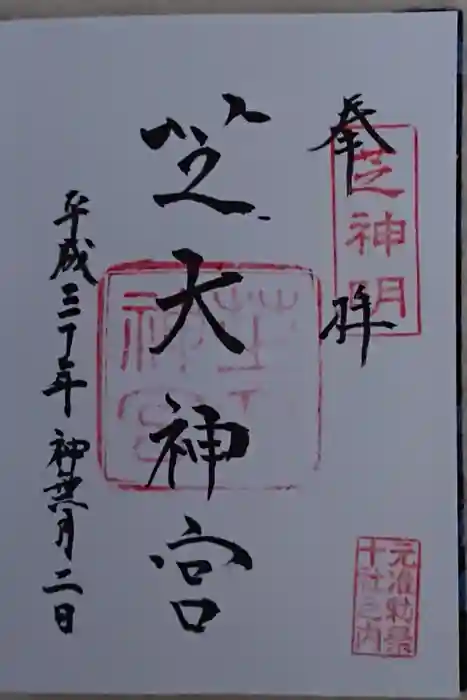 奉拝
芝神明
芝大神宮
芝大神宮
平成三丁年 神無月二日
元准勅祭
十社之内